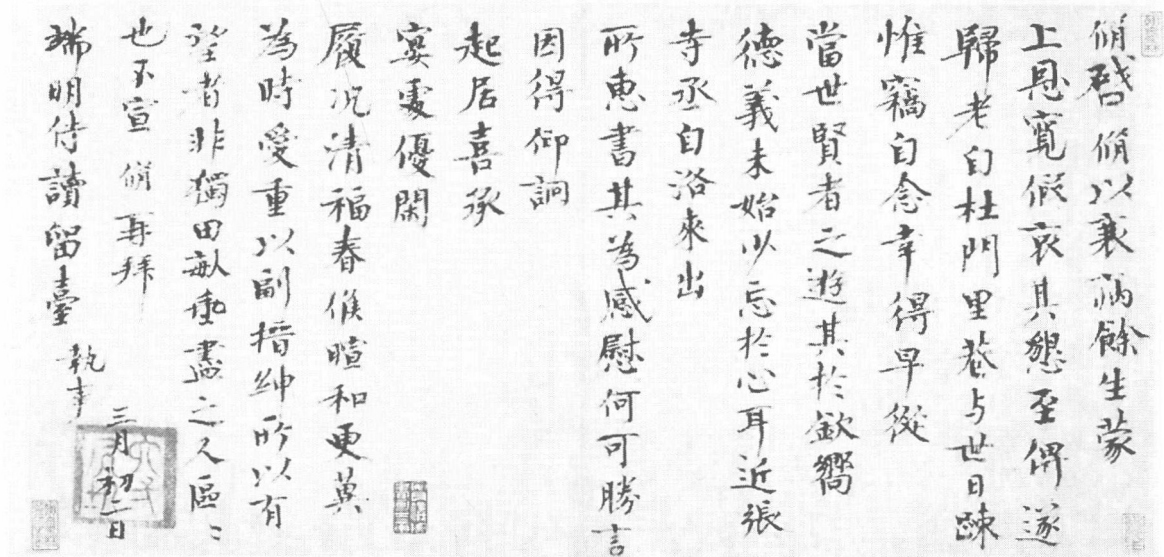 脩啓脩以衰病餘生蒙
上恩寬假哀其懇至俾遂
歸老自杜門里巷与世日踈
惟竊自念幸得早從
當世賢者之遊其於欽嚮
德義未始少忘於心耳近張
寺丞自洛來出
所惠書其為感慰何可勝言
因得仰詗
起居喜承
宴處優閑
履況清福春候暄和更冀
為時愛重以副搢紳所以有
望者非獨田畝垂盡之人區區
也不宣 脩 再拜
端明侍讀留臺 執事
三月初二日